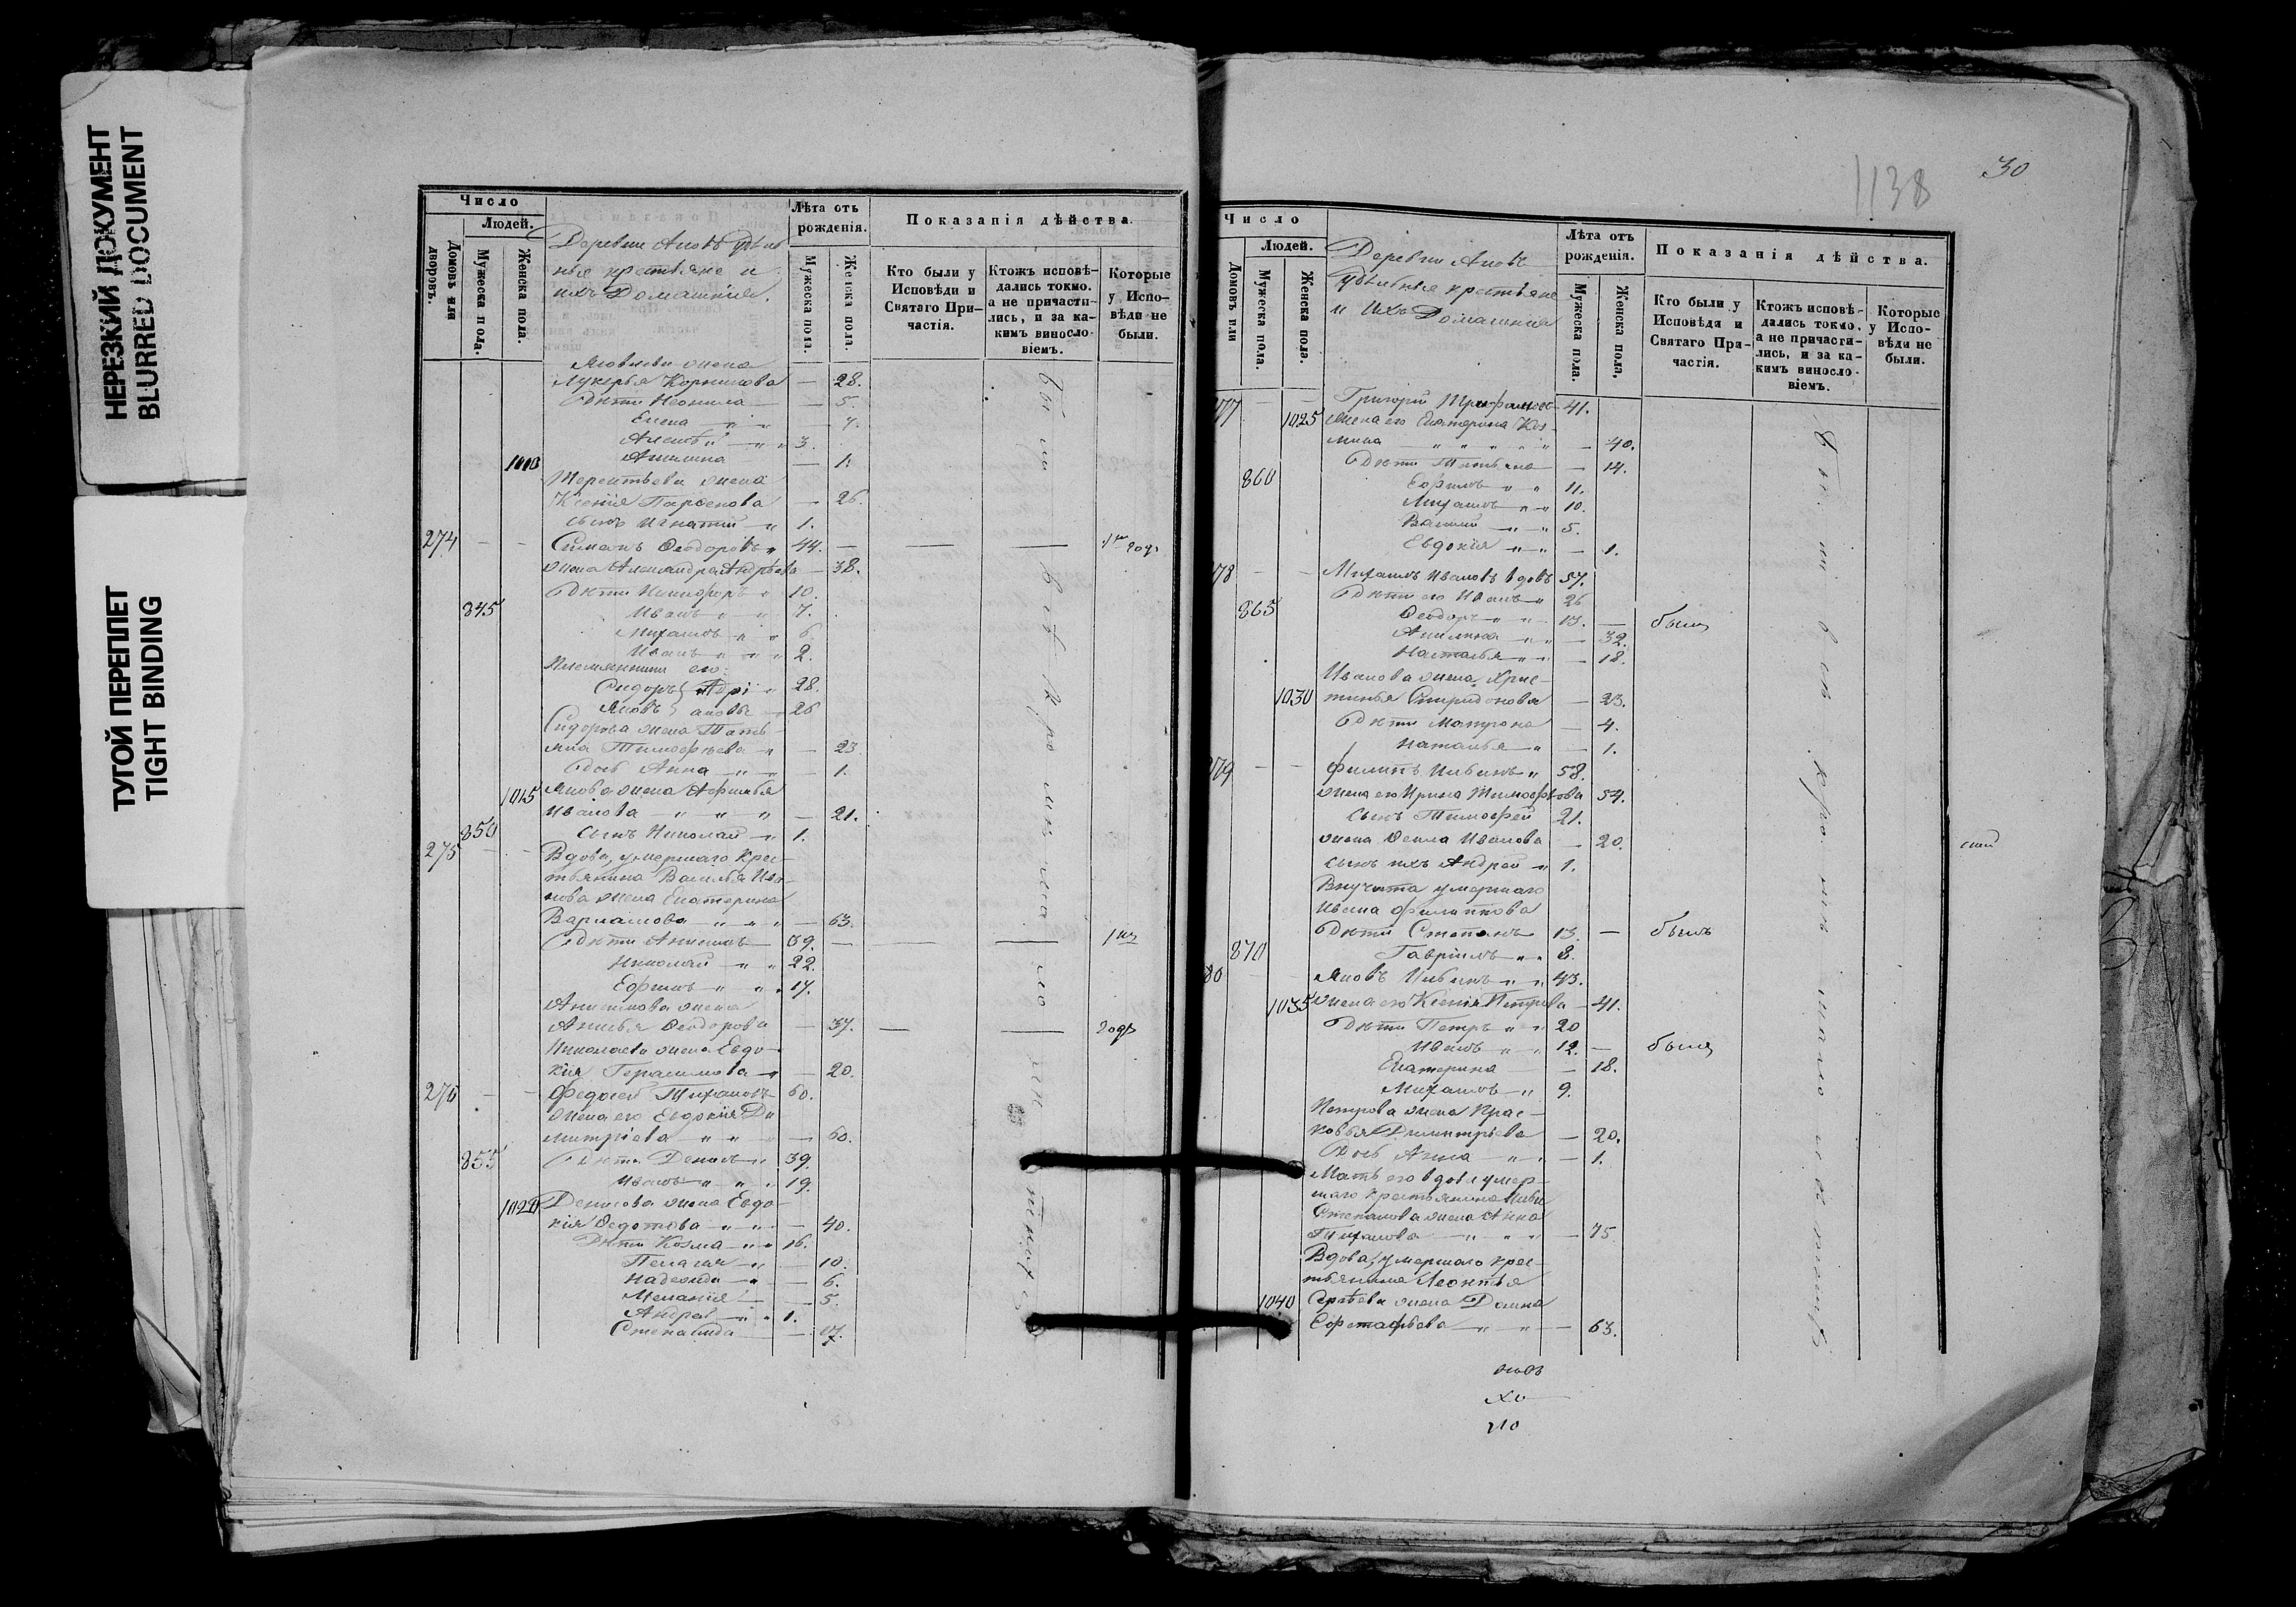 НЕРЕЗКИЙ ДОКУМЕНТ
BLURRED DOCUMENT
ТУГОЙ ПЕРЕПЛЕТ
TIGHT BINDING
Число
Людей.
Домовъ или дворовъ.
Мужеска пола.
Женска пола.
Деревни
крестьяне и
ихъ Домашнія.
Лѣта отъ рожденія.
Мужеска пола.
Женска пола.
Показанія дѣйства.
Кто были у Исповѣди и Святаго Причастія.
Ктожъ исповѣдались токмо, а не причастились, и за какимъ винословіемъ.
Которые у Исповѣди не были.
Яковлева жена
Лукерья Корнилова — 28.
Дѣти Неонила — 5.
Елена — 4.
Алексѣй 3.
Акилина — 1.
Терентьева жена
Ксенія Парѳенова — 26.
сынъ Игнатій 1.
274 — — Симонъ Ѳеодоровъ 44. — — — 1й годъ
жена Александра Андрѣева — 38.
Дѣти Никифоръ 10.
845 Иванъ 7.
Михаилъ 6.
Иванъ 2.
Племянники его:
Сидоръ 28.
Яковъ 26
Сидорова жена Тать-
яна Тимоѳѣева — 23
дочь Анна — 1.
1015 Якова жена Афимья
Иванова — 21.
850 сынъ Николай 1.
275 — — Вдова, умершаго крес-
тьянина Василья Ива-
нова жена Екатерина
Варламова — 63.
Дѣти Анисимъ 39. — — — 1й
Николай 22.
Ефимъ 17.
Анисимова жена
Анисья Ѳеодорова — 37. — — годъ
Николаева жена Евдо-
кія Герасимова — 20.
276 — — Федосей Тихановъ 60.
жена его Евдокія Ди
митріева — 60.
855 Дѣти Денисъ 39.
Иванъ 19.
1020 Денисова жена Евдо-
кія Ѳедотова — 40.
Дѣти Козма 16.
Пелагея — 10.
Надежда — 6.
Меланія — 5.
Андрей 1.
Степанида — 17.
1138
30
Число
Людей.
Домовъ или
Мужеска пола.
Женска пола.
Деревни
Удѣльные крестьяне
и ихъ Домашнія
Лѣта отъ рожденія.
Мужеска пола.
Женска пола.
Показанія дѣйства.
Кто были у Исповѣди и Святаго Причастія.
Ктожъ исповѣдались токмо, а не причастились, и за какимъ винословіемъ.
Которые у Исповѣди не были.
77 — — Григорій Трифановъ 41.
1025 жена его Екатерина Коз-
мина — 40.
Дѣти Татьяна — 14.
860 Ефимъ 11.
Михаилъ 10.
Василій 5.
Евдокія — 1.
78 — — Михаилъ Ивановъ вдовъ 57.
Дѣти его Иванъ 26
865 Ѳеодоръ 13. — были
Акилина — 32.
Наталья — 18.
Иванова жена Хрис-
1030 тинья Спиридонова — 23.
Дѣти Матрона — 4.
Наталья — 1.
79 — — Филипъ 58.
жена его Ирина Тимоѳѣева 54.
сынъ Тимоѳей 21.
жена Ѳекла Иванова — 20.
сынъ ихъ Андрей 1.
Внучата умершаго
Ивана Филиппова
Дѣти Степанъ 13. — былъ
870 Гавріилъ 8.
80 Яковъ 43.
1035 жена его Ксенія Петрова — 41.
Дѣти Петръ 20
Иванъ 12. — были
Екатерина — 18.
Михаилъ 9.
Петрова жена Прас-
ковья Димитріева — 20.
Дочь Анна — 1.
Мать его вдова умер-
шаго крестьянина
Степанова жена Анна
Тиханова — 75.
Вдова, умершаго крес-
тьянина Леонтья
1040 Сергѣева жена Домна
Ефстафьева — 63.